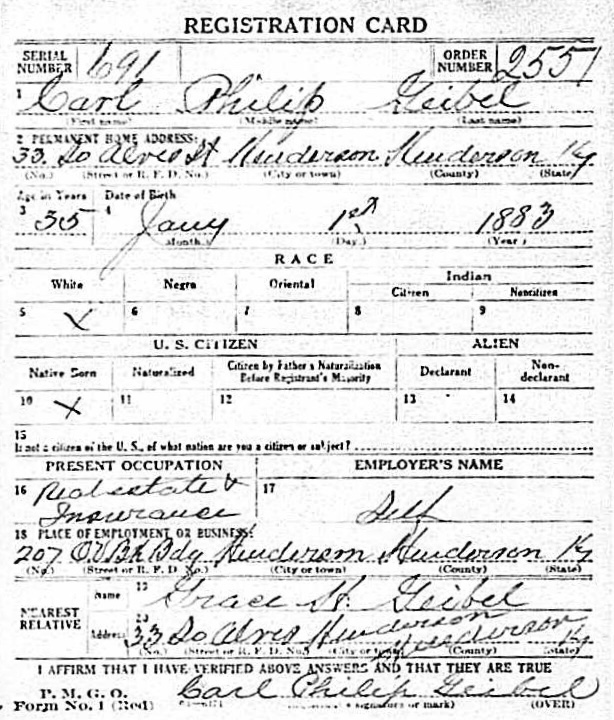 REGISTRATION CARD
SERIAL NUMBER 691 ORDER NUMBER 2551
1 Carl Philip Geibel
(First name) (Middle name) (Last name)
2 PERMANENT HOME ADDRESS:
33 So Alves St Henderson Henderson Ky
(No.) (Street or R. F. D. No.) (City or town) (County) (State)
Age in Years Date of Birth
3 35 4 Jany 1st 1883
(Month.) (Day.) (Year)
RACE
White Negro Oriental Indian
Citizen Noncitizen
5 X 6 7 8 9
U. S. CITIZEN ALIEN
Native Born Naturalized Citizen by Father's Naturalization Before Registrant's Majority Declarant Non-declarant
10 X 11 12 13 14
15
If not a citizen of the U. S., of what nation are you a citizen or subject?
PRESENT OCCUPATION EMPLOYER'S NAME
16 Real estate & 17
Insurance Self
18 PLACE OF EMPLOYMENT OR BUSINESS:
207 O.V.Bk Bdg Henderson Henderson Ky
(No.) (Street or R. F. D. No.) (City or town) (County) (State)
NEAREST RELATIVE
Name 19 Grace H. Geibel
Address 20 33 So Alves Henderson Henderson Ky
(No.) (Street or R. F. D. No.) (City or town) (County) (State)
I AFFIRM THAT I HAVE VERIFIED ABOVE ANSWERS AND THAT THEY ARE TRUE
P. M. G. O. Carl Philip Geibel
Form No. 1 (Red) signature or mark) (OVER)